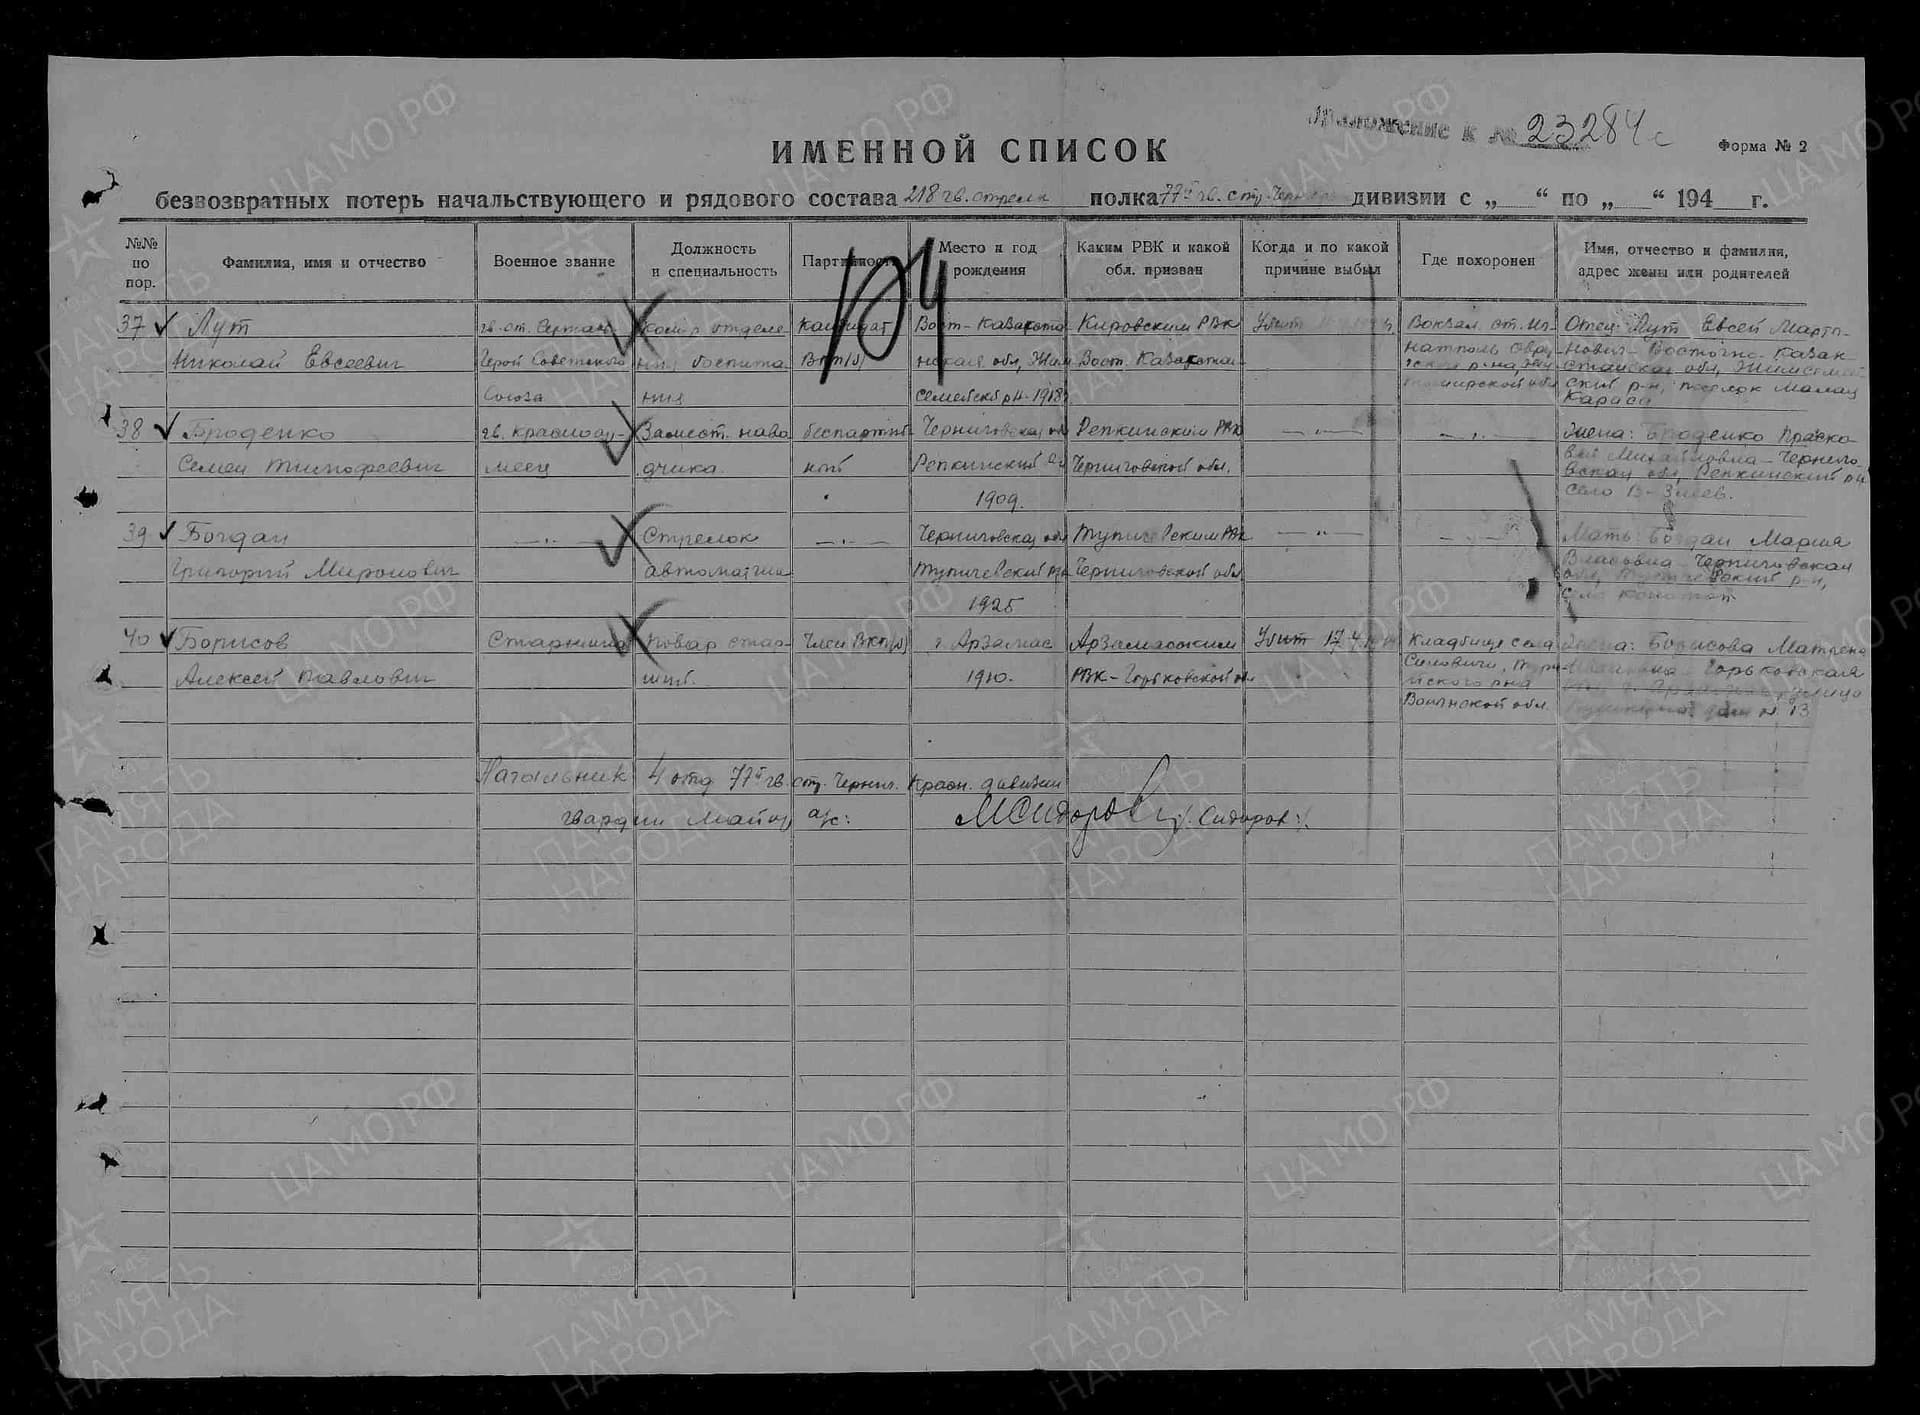 Приложение к № 23284с
Форма № 2
ИМЕННОЙ СПИСОК
безвозвратных потерь начальствующего и рядового состава 218 гв. стрелк полка 77й гв. стр. дивизии с „ “ по „ “ 194 г.
№№ по пор.
Фамилия, имя и отчество
Военное звание
Должность и специальность
Партийность
Место и год рождения
Каким РВК и какой обл. призван
Когда и по какой причине выбыл
Где похоронен
Имя, отчество и фамилия, адрес жены или родителей
37
Лут
Николай Евсеевич
гв. ст. Сержан-
Герой Советского
Союза
Ком-р отделе-
ния
Кандидат
ВКП(б)
Вост-Казахста-
нская обл,
1918
Кировским РВК
Вост. Казахстан
Убит
Вокзал. ст. Иг-
натполь Овру-
Отец: Лут Евсей Марты-
нович Восточно-Казах-
станская обл,
ский р-н, поселок
38
Броденко
Семен Тимофеевич
гв. красноар-
меец
Замест. наво
дчика
беспартий
ный
Черниговская обл
Репкинский р-н
1909.
Репкинским РВК
Черниговской обл.
— „ —
— „ —
Жена: Броденко Праско-
вья Михайловна-Чернигов-
вская обл, Репкинский р-н
село В-Злеев.
39
Богдан
Григорий Миронович
— „ —
Стрелок
автоматчик
— „ —
Черниговская обл
Тупичевский р-н
1925
Тупичевским РВК
Черниговской обл
— „ —
— „ —
Мать: Богдан Мария
Власовна Черниговская
обл, Тупичевский р-н,
село
40
Борисов
Алексей Павлович
Старшина
Повар стар-
шт.
Член ВКП(б)
г. Арзамас
1910.
Арзамасским
РВК-Горьковской обл
Убит 17.4.
Кладбище села
Воынской обл.
Жена: Борисова Матрена
Горьковская
улица
дом № 13
104
Начальник 4 отд 77й гв. стр. Черниг. Красн. дивизии
гвардии Майор а/с: МСидоров /Сидоров/.
ЦА МО РФ
ПАМЯТЬ НАРОДА